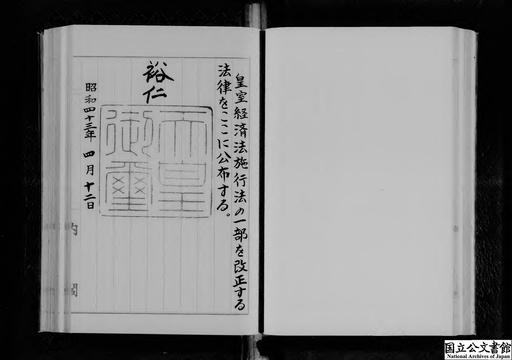 皇室経済法施行法の一部を改正する
法律をここに公布する。
裕仁
天皇
御璽
昭和四十三年四月十二日
内閣
国立公文書館
National Archives of Japan